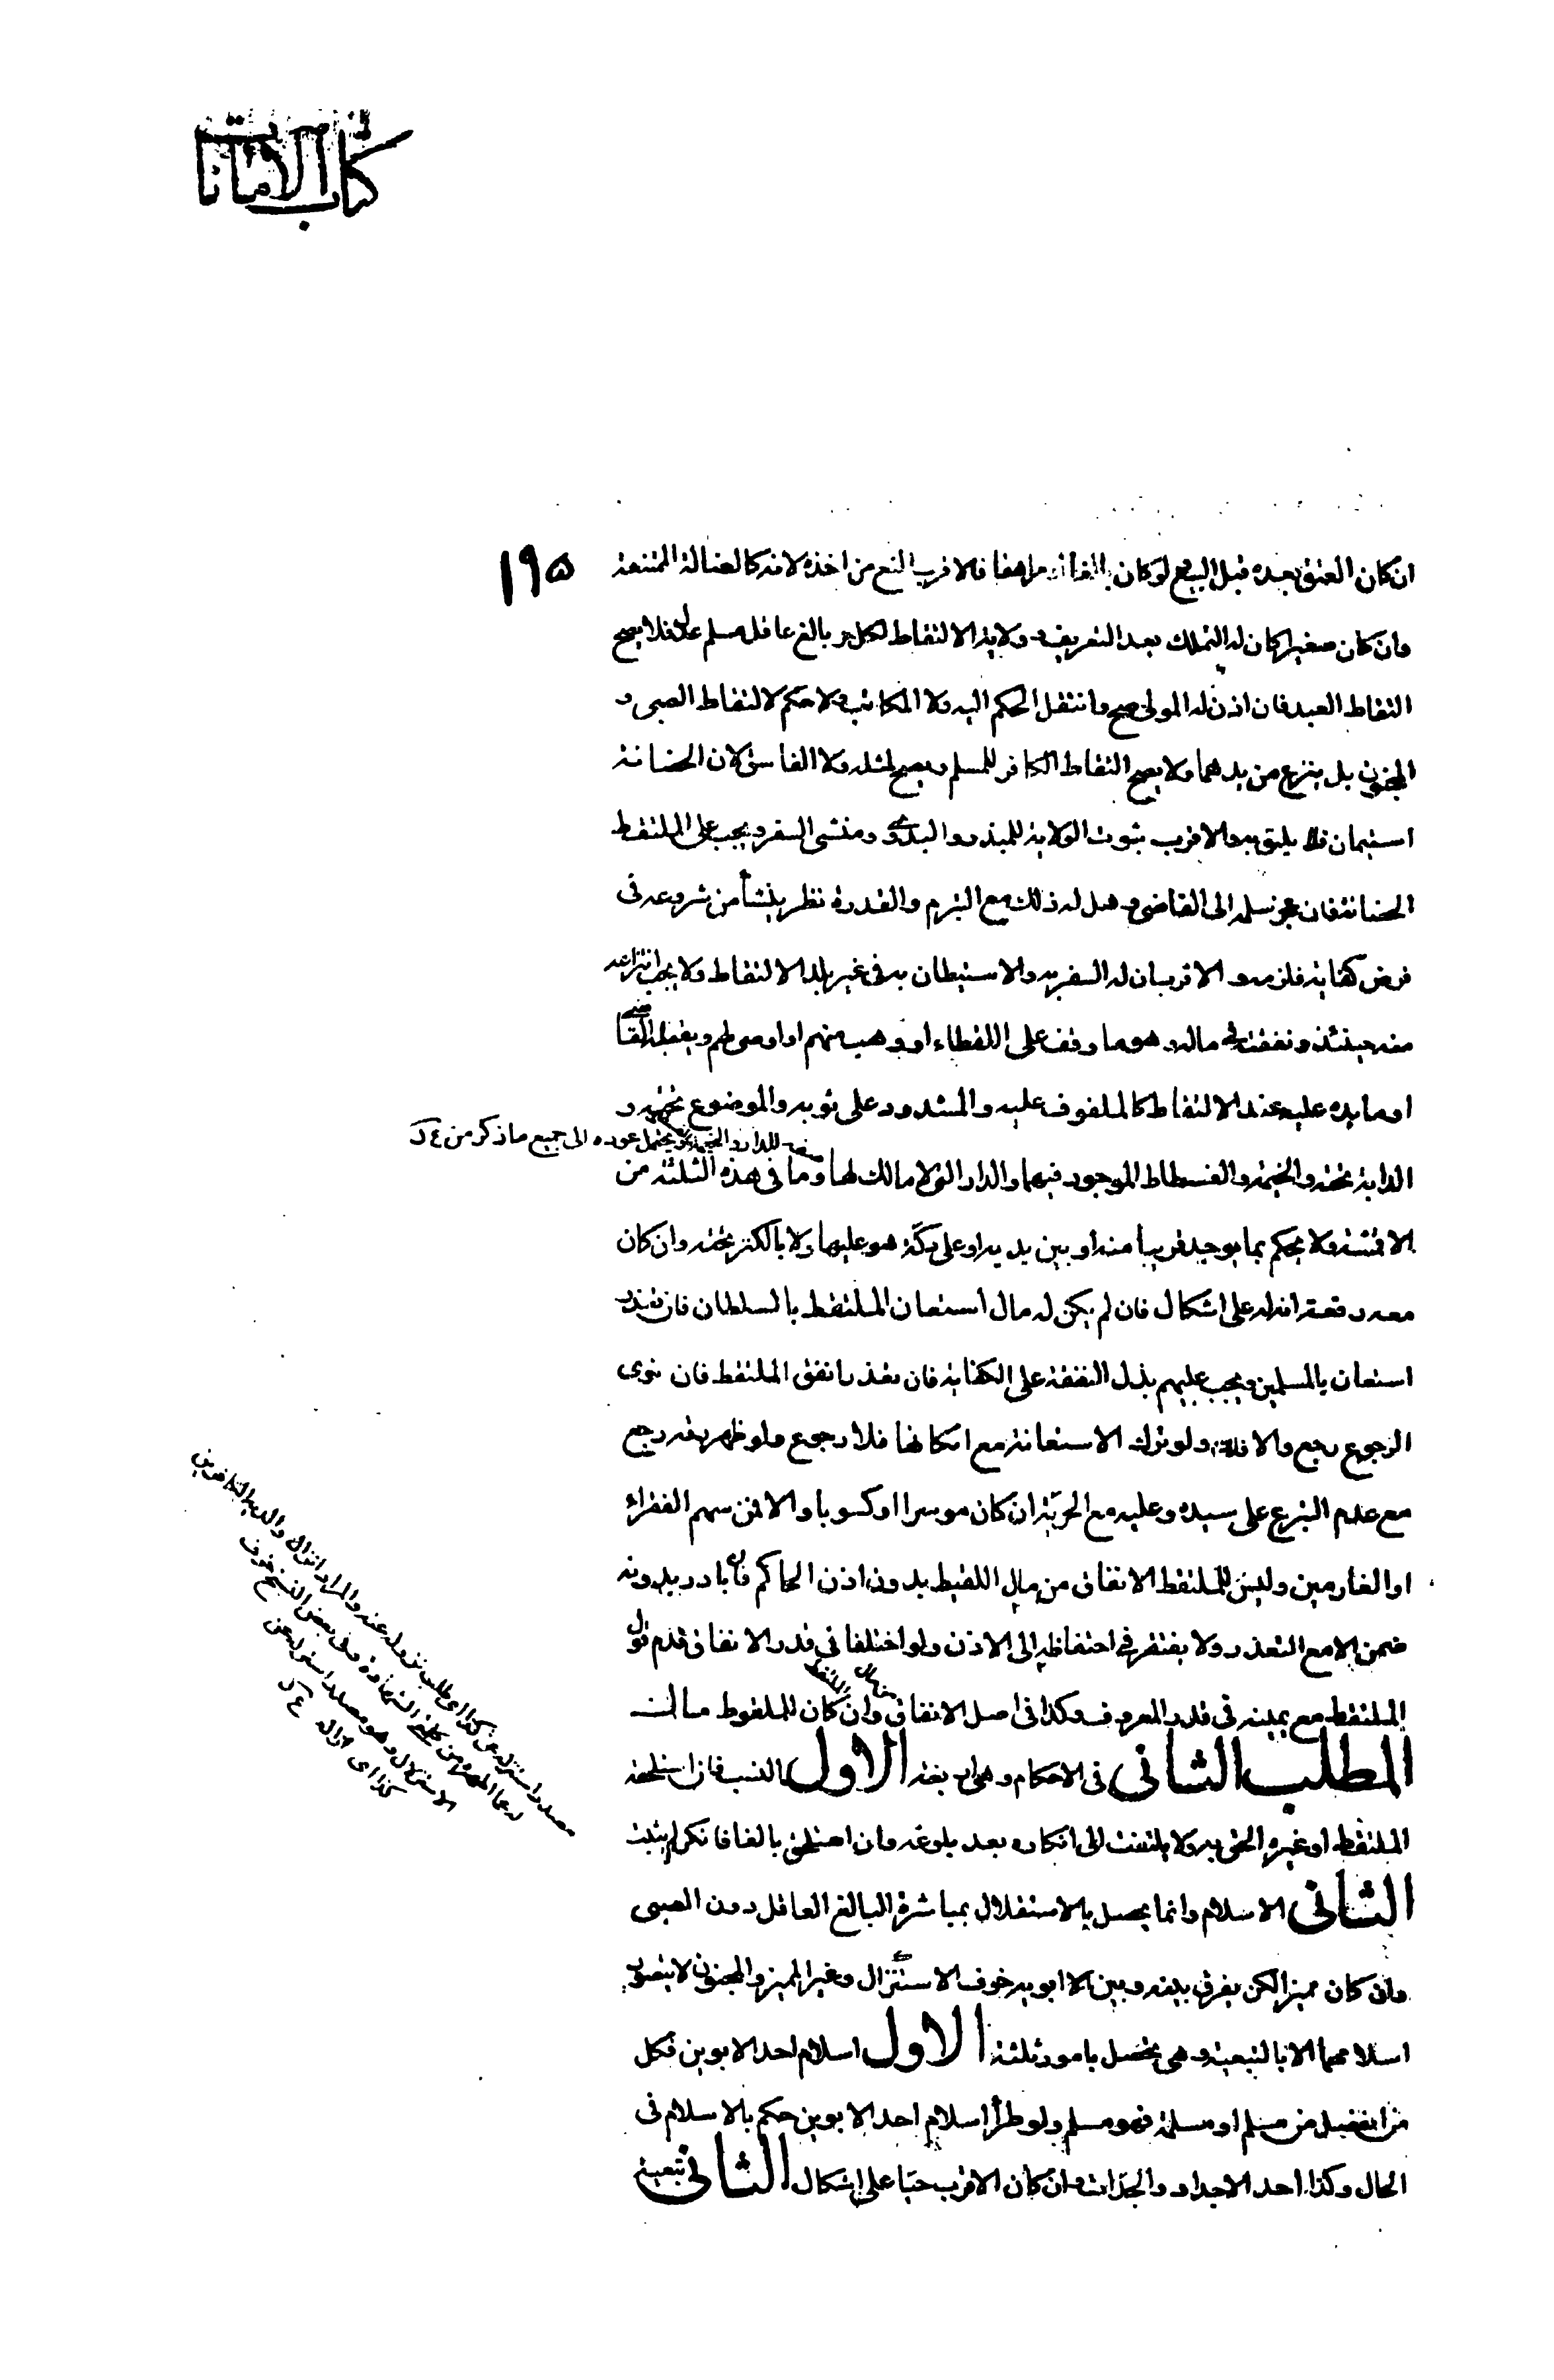 كتاب الامانات
١٩٥
ان كان العتق بعده قبل البيع لو كان بالغا او مراهقا فالاقرب المنع من اخذه لانه كالضالة الممتنعة
وان كان صغيرا كان له التملك بعد التعريف و ولاية الالتقاط لكل حر بالغ عاقل مسلم عدل فلا يصح
التقاط العبد فان اذن له المولى صح وانتقل الحكم اليه ولا المكاتب ولا حكم لالتقاط الصبى و
المجنون بل ينزع من يدهما ولا يصح التقاط الكافر للمسلم ويصح لمثله ولا الفاسق لان الحضانة
استيمان فلا يليق به والاقرب ثبوت الولاية للمبذر والبدوى ومنشى السفر ويجب على الملتقط
الحضانة فان عجز سلمه الى القاضى وهل له ذلك مع التبرم والقدرة نظر ينشأ من شروعه فى
فرض كفاية فلزمه والاقرب ان له السفر به والاستيطان به فى غير بلد الالتقاط ولا يجب انتزاعه
منه حينئذ ونفقته فى ماله وهو ما وقف على اللقطاء او وهب منهم او اوصى لهم ويقبله القاضى
او ما يده عليه عند الالتقاط كالملفوف عليه والمشدود على ثوبه والموضوع تحته و
صفة للدار والخيمة يحتمل عوده الى جميع ما ذكر من ع ك
الدابة تحته والخيمة والفسطاط الموجود فيهما والدار التى لا مالك لها وما فى هذه الثلثة من
الاقمشة ولا يحكم بما يوجد قريبا منه او بين يديه او على دكة هو عليها ولا بالكنز تحته وان كان
معه رقعة انه له على اشكال فان لم يكن له مال استعان الملتقط بالسلطان فان تعذر
استعان بالمسلمين ويجب عليهم بذل النفقة على الكفاية فان تعذر انفق الملتقط فان نوى
الرجوع رجع والا فلا ولو ترك الاستعانة مع امكانها فلا رجوع ولو ظهر رقه رجع
مع عدم التبرع على سيده وعليه مع الحرية ان كان موسرا او كسوبا والا فمن سهم الفقراء
او الغارمين وليس للملتقط الانفاق من مال اللقيط بدون اذن الحاكم فان بادر بدونه
ضمن الا مع التعذر ولا يفتقر فى احتفاظه الى الاذن ولو اختلفا فى قدر الانفاق قدم قول
الملتقط مع يمينه فى قدر المعروف وكذا فى اصل الانفاق وان كان للملقوط مال
المطلب الثانى فى الاحكام وهى اربعة الاول النسب فان استلحقه
الملتقط او غيره الحق به ولا يلتفت الى انكاره بعد بلوغه وان استلحق بالغا فانكر لم يثبت
الثانى الاسلام وانما يحصل بالاستقلال بمباشرة البالغ العاقل دون الصبى
وان كان مميزا لكن يفرق بينه وبين الابويه خوف الاستنزال وغير المميز والمجنون لا يتصور
اسلامهما الا بالتبعية وهى تحصل بامور ثلثة الاول اسلام احد الابوين فكل
من انفصل من مسلم او مسلمة فهو مسلم ولو طرأ اسلام احد الابوين حكم بالاسلام فى
الحال وكذا احد الاجداد والجدات وان كان الاقرب حيا على اشكال الثانى تبعية
مصدر استنزله عن كذا اى طلب نزوله عنه والمراد انزال
وفى بعض النسخ خوف
الاستزلال وهو مصدر استزله عن
كذا اى ازاله ع ك